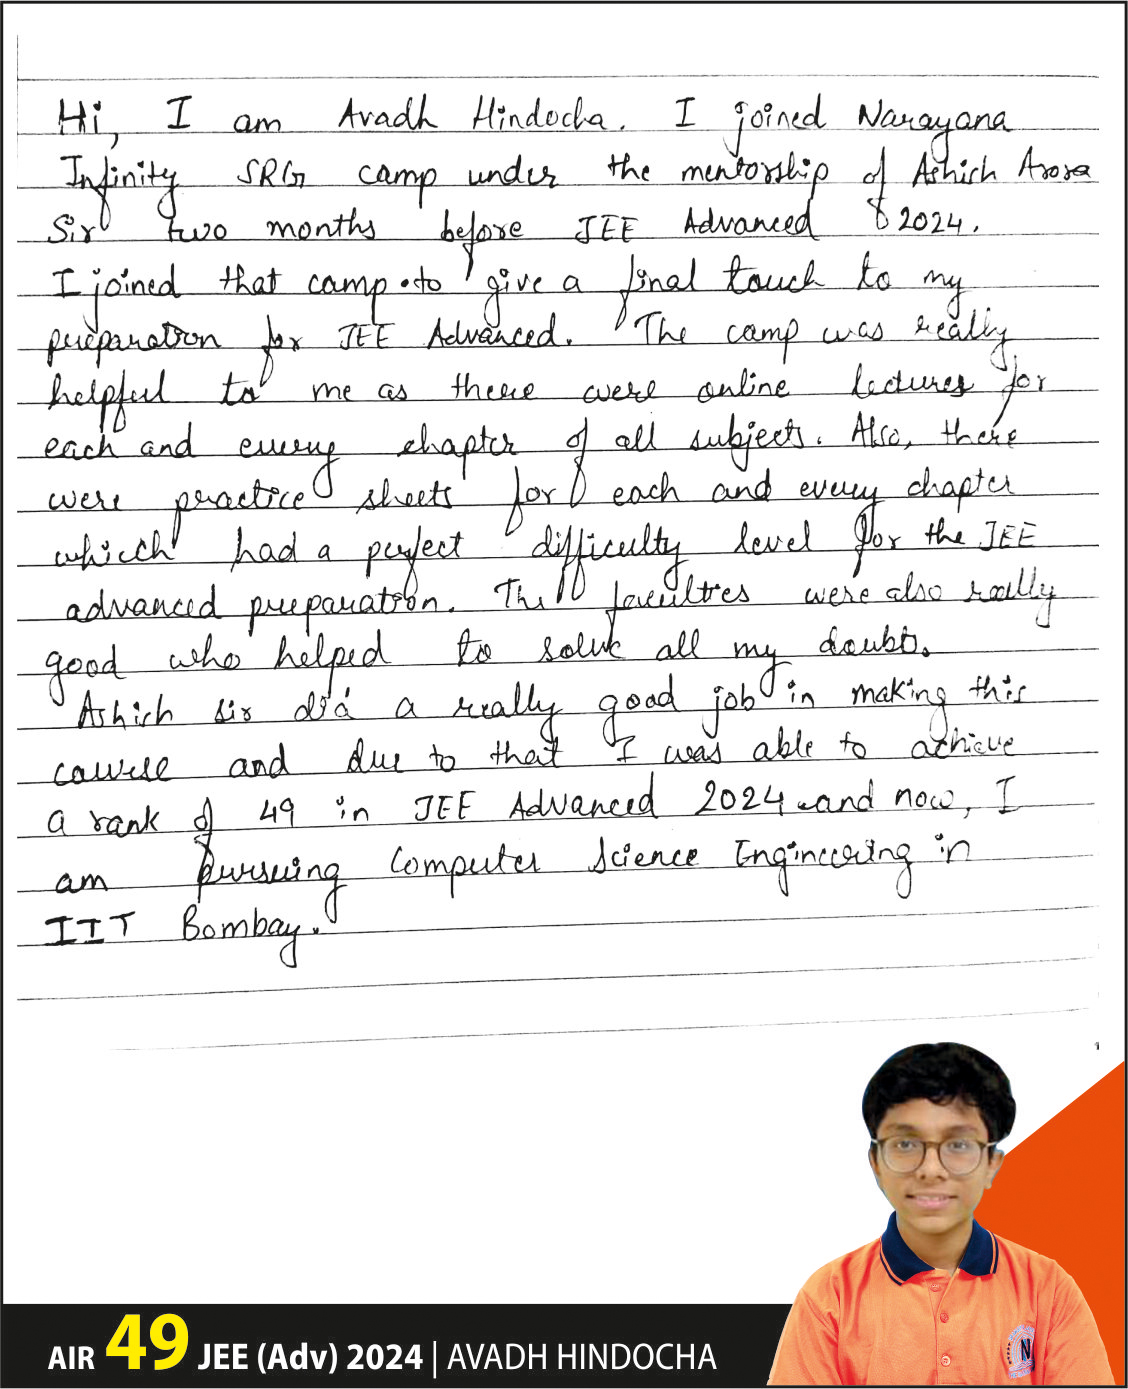 Hi, I am Avadh Hindocha. I joined Narayana
Infinity SRG camp under the mentorship of Ashish Arora
Sir two months before JEE Advanced 2024.
I joined that camp to give a final touch to my
preparation for JEE Advanced. The camp was really
helpful to me as there were online lectures for
each and every chapter of all subjects. Also, there
were practice sheets for each and every chapter
which had a perfect difficulty level for the JEE
advanced preparation. The faculties were also really
good who helped to solve all my doubts.
Ashish sir did a really good job in making this
course and due to that I was able to achieve
a rank of 49 in JEE Advanced 2024 and now, I
am pursuing Computer Science Engineering in
IIT Bombay.
N
AIR 49 JEE (Adv) 2024 | AVADH HINDOCHA